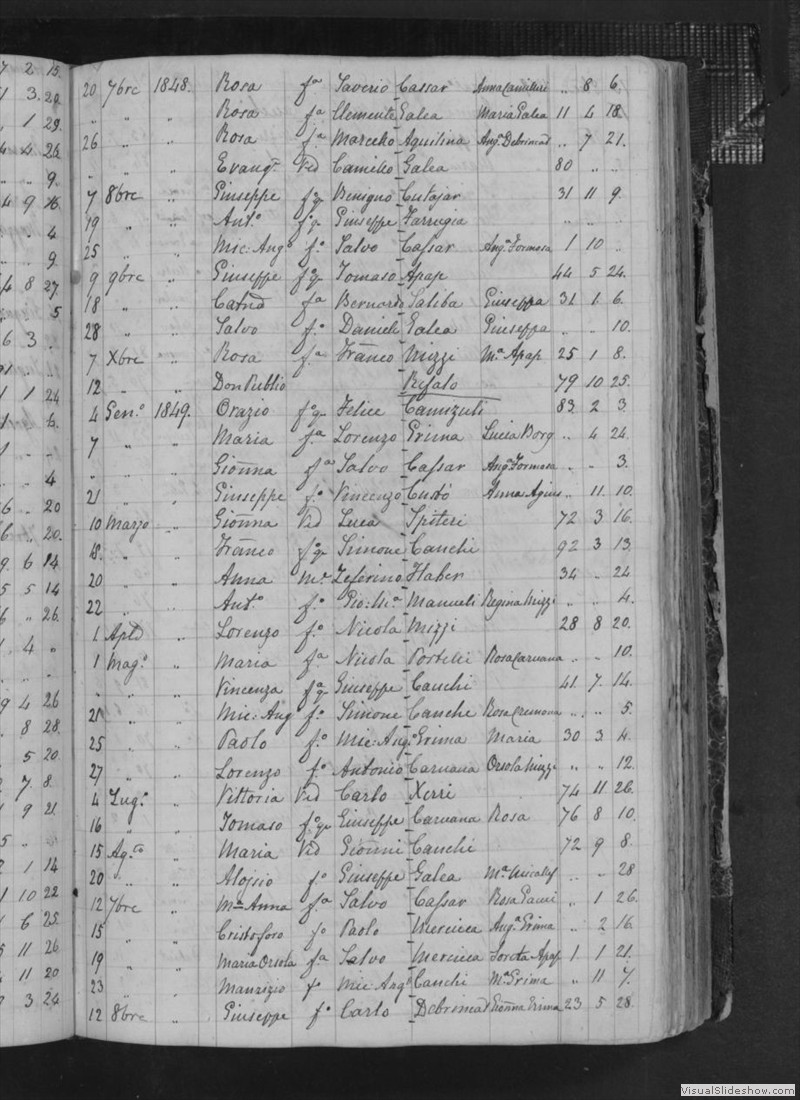 7 2 15.
20 7bre 1848. Rosa fa Saverio Cassar Anna Camilleri „ 8 6.
1 3. 29.
„ „ „ Rosa fa Clemente Galea Maria Galea 11 4 18.
„ 1 29.
26 „ „ Rosa fa Marcello Aquilina Anga Debrincat „ 7 21.
4 4 26.
Evangta Vid Camillo Galea 80 „ „
„ „ 9.
7 8bre „ Giuseppe fq Benigno Cutajar 31 11 9.
4 9 16.
19 „ „ Anto foq Giuseppe Farrugia „ „ „
„ „ 4.
25 „ „ Mic: Ango fo Salvo Cassar Anga Formosa 1 10 „
„ „ 9.
9 9bre „ Giuseppe fq Tomaso Apap 44 5 24.
4 8 27
18 „ „ fa Bernardo Saliba Giuseppa 31 1 6.
„ „ 5
28 „ „ Salvo fo Daniele Galea Giuseppa „ „ 10.
6 3 .
7 Xbre „ Rosa fa Franco Mizzi Ma Apap 25 1 8.
12 „ „ Don Publio Refalo 79 10 25.
1 1 24
4 Geno 1849. Orazio foq Felice 83 2 3.
6.
7 „ „ Maria fa Lorenzo Grima Lucia Borg „ 4 24.
„ „ Gionna fa Salvo Cassar Anga Formosa „ „ 3.
„ „ 4
21 „ „ Giuseppe fo Vincenzo Anna Agius „ 11. 10.
6 „ 20
10 Marzo „ Gionna Vid Luca Spiteri 72 3 16.
6 „ 20.
18. „ „ Franco foq Simone Cauchi 92 3 13.
9 6 14
20 „ „ Anna Me Zeferino Haber 34 „ 24
5 5 14
22 „ „ Anto fo Gio: Ma Manueli Regina Mizzi „ „ 4.
6 „ 26.
1 Aple „ Lorenzo fo Nicola Mizzi 28 8 20.
1 4 „
1 Mago „ Maria fa Nicola Portelli Rosa Caruana „ „ 10.
„ „ „ Vincenza faq Giuseppe Cauchi 41. 7. 14.
9 4 26
21 „ „ Mic: Ang fo Simone Cauchi Rosa Cremona „ „ 5.
„ 8 28.
25 „ Paolo fo Mic: Ango Grima Maria 30 3 4.
5 20.
27 „ Lorenzo fo Antonio Caruana Orsola Mizzi „ „ 12.
7. 8.
4 Lugo „ Vittoria Vid Carlo Xerri 74 11 26.
1 9 21.
16 „ „ Tomaso foq Giuseppe Caruana Rosa 76 8 10.
5 „ „
15 Agto „ Maria Vid Gionni Cauchi 72 9 8.
2 1 14
20 „ „ Aloisio fo Giuseppe Galea „ „ 28
1 10 22
12 7bre „ Ma Anna fa Salvo Cassar Rosa „ 1 26.
1 6 25.
15 „ Cristoforo fo Paolo Mercieca Anga Grima „ 2 16
5 11 26
19 „ „ Maria Orsola fa Salvo Mercieca Loreta Apap 1 1 21.
4 11 20
23 „ „ Maurizio fo Mic Ango Cauchi Ma Grima „ 11 7.
7 3 24
12 8bre „ Giuseppe fo Carlo Debrincat Gionna Grima 23 5 28.
VisualSlideshow.com